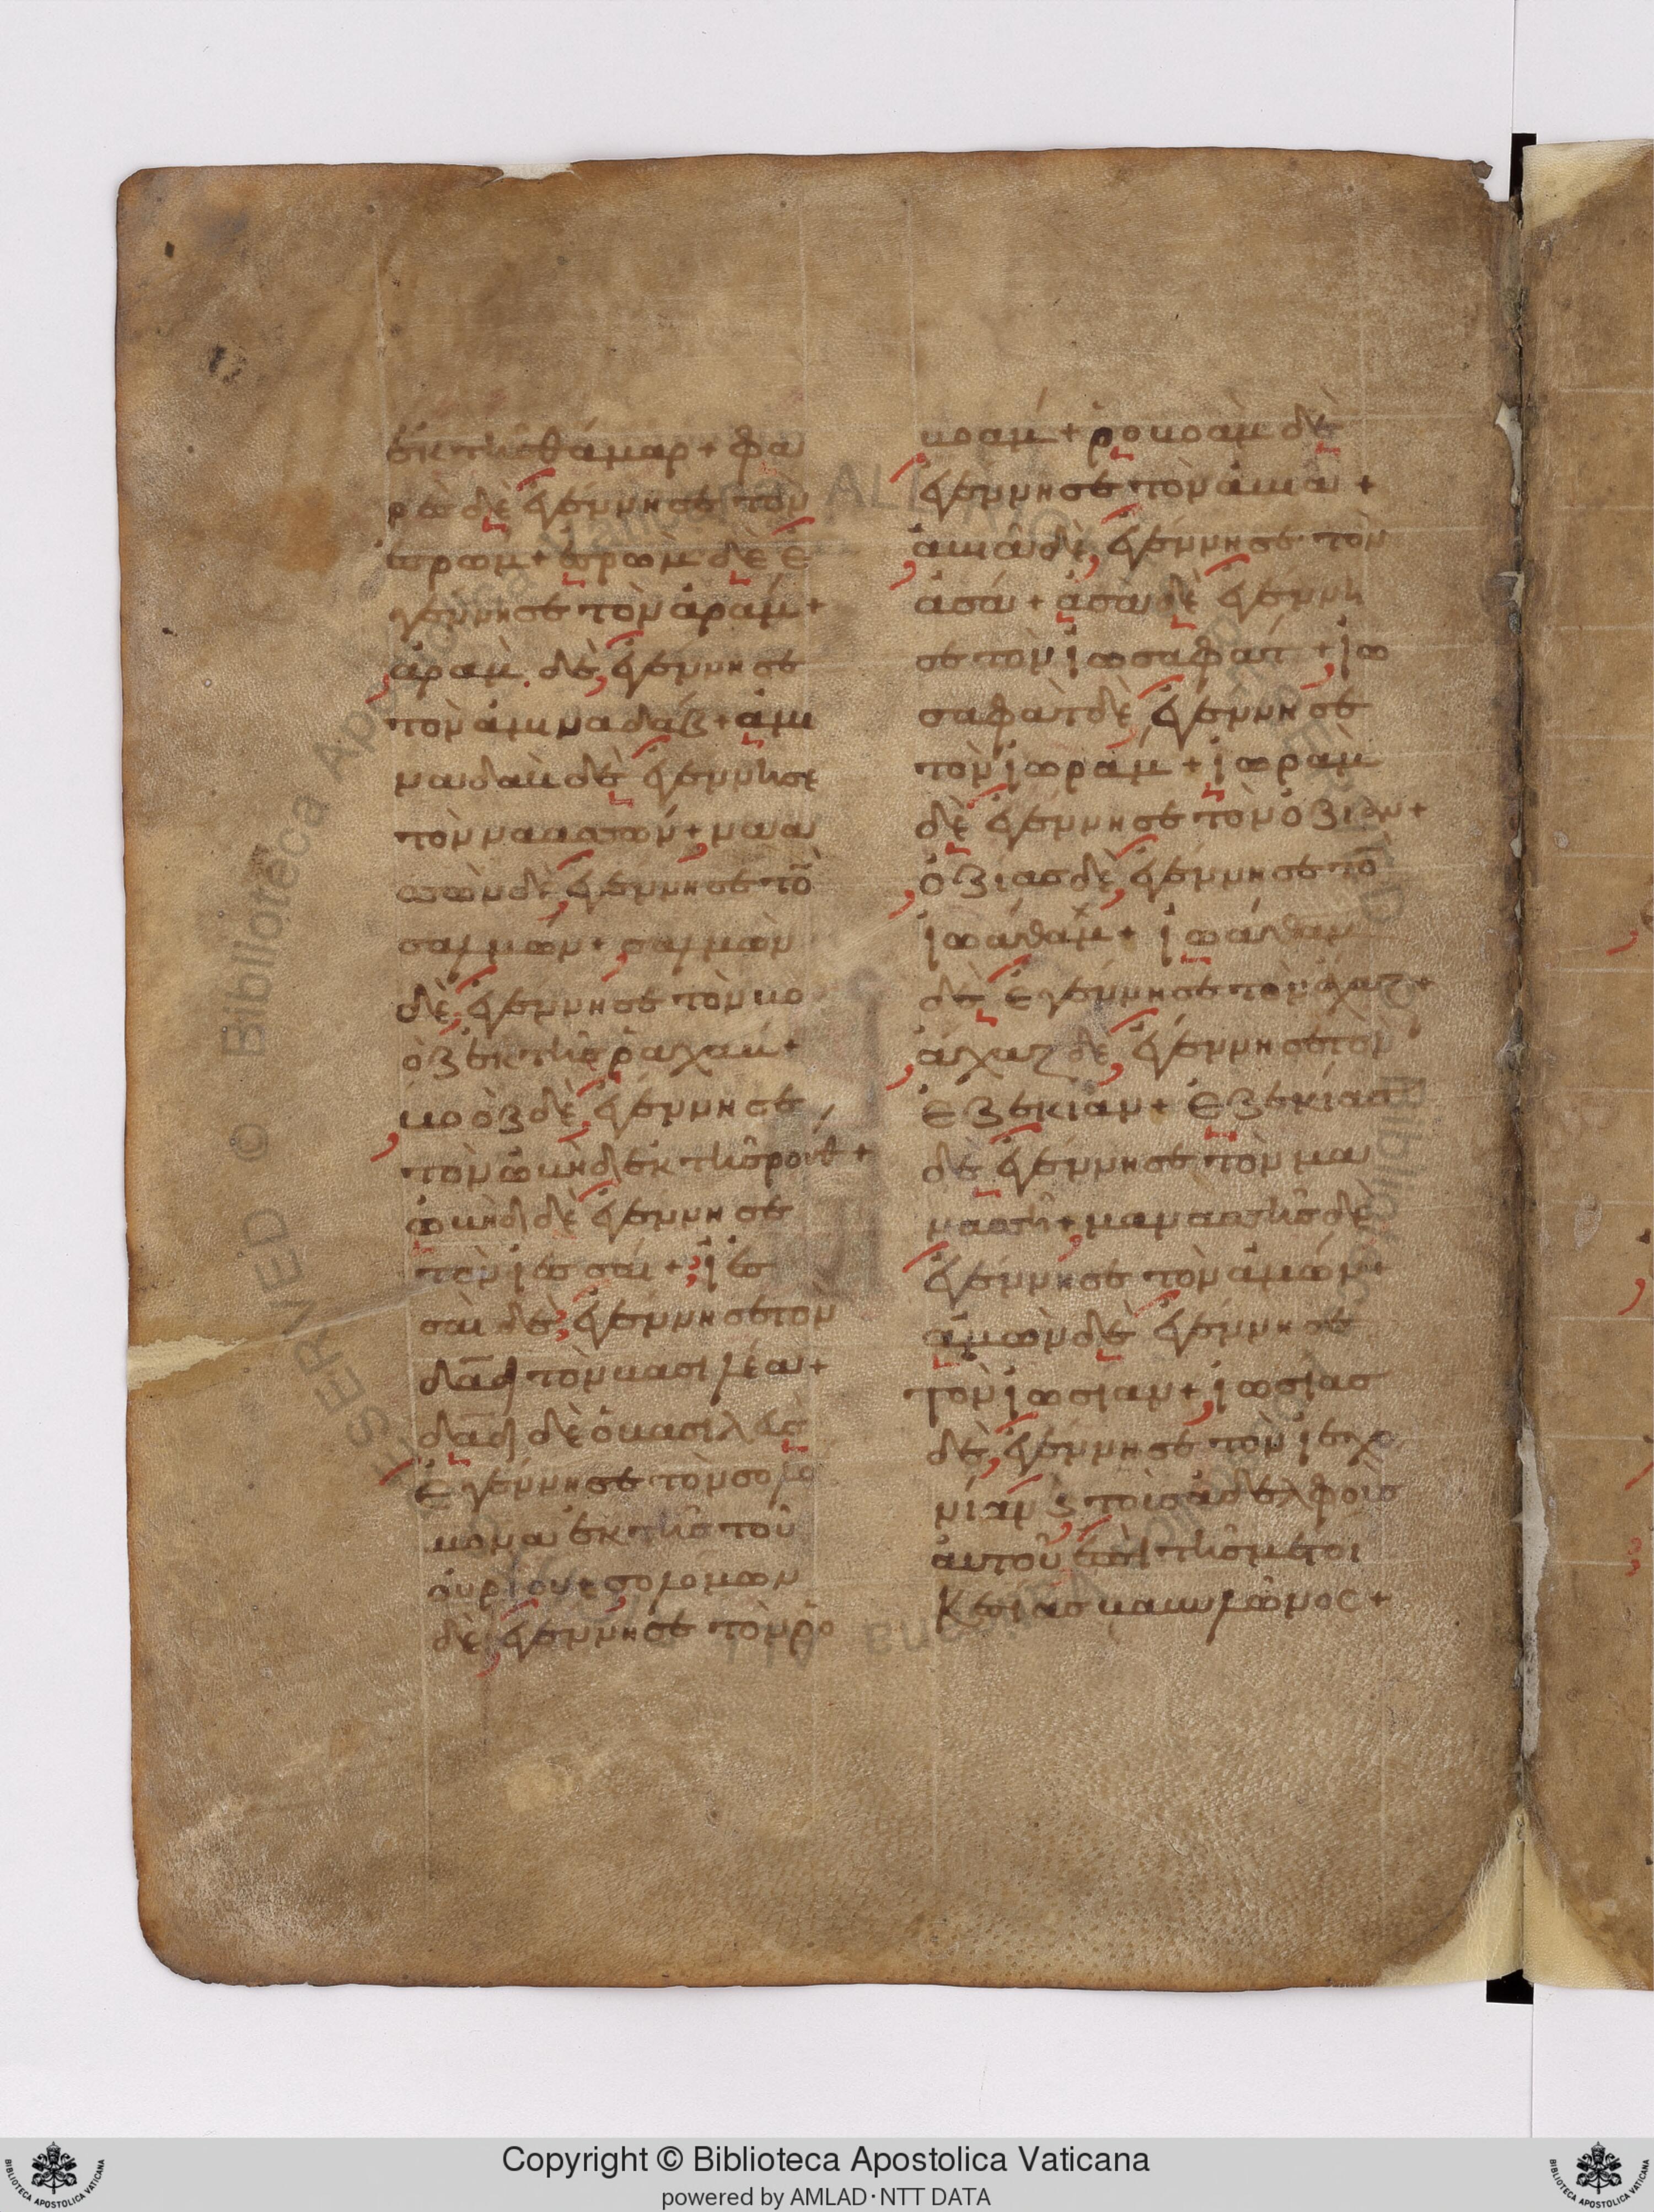 ἐκ τῆς θάμαρ + φα
ρὲς δὲ ἐγέννησε τὸν
ἐσρώμ + ἐσρὼμ δὲ ἐ
γέννησε τὸν ἀράμ +
ἀρὰμ δὲ ἐγέννησε
τὸν ἀμιναδάβ + ἀμι
ναδαὺ δὲ ἐγέννησε
τὸν ναασσών + νάα
σσὼν δὲ ἐγέννησε το̄
σαλμών + σαλμὼν
δὲ ἐγέννησε τὸν βο
ὸζ ἐκ τῆς ῥαχάβ +
βοὸζ δὲ ἐγέννησε
τὸν ὠβὴδ ἐκ τῆς ρούθ +
ὠβὴδ δὲ ἐγέννησε
τὸν ἰεσσαί + ἰεσ
σαὶ δὲ ἐγέννησε τὸν
δᾱδ τὸν βασιλέα +
δᾱδ δὲ ὁ βασιλεὺς
ἐγέννησε τὸν σολο
μόνα ἐκ τῆς τοῦ
οὐρίου + σολομὼν
δὲ ἐγέννησε τὸν ῥο
βοάμ + ῥοβοὰμ δὲ
ἐγέννησε τὸν ἀβιά +
ἀβιὰ δὲ ἐγέννησε τὸν
ἀσά + ἀσὰ δὲ ἐγέννη
σε τὸν ἰωσαφάτ + ἰω
σαφὰτ δὲ ἐγέννησε
τὸν ἰωράμ + ἰωρὰμ
δὲ ἐγέννησε τὸν ὀζίαν +
ὀζίας δὲ ἐγέννησε το̄
ἰωάθαμ + ἰωάθαμ
δὲ ἐγέννησε τὸν ἄχαζ +
ἄχαζ δὲ ἐγέννησε τὸν
ἐζεκίαν + ἐζεκίας
δὲ ἐγέννησε τὸν μα
νασσῆ + μανασσῆς δὲ
ἐγέννησε τὸν ἀμών +
ἀμὼν δὲ ἐγέννησε
τὸν ἰωσίαν + ἰωσίας
δὲ ἐγέννησε τὸν ἰεχο
νίαν ϗ τοὺς ἀδελφοὺς
αὐτοῦ ἐπὶ τῆς μετοι
κεσίας βαβυλῶνος +
Copyright © Biblioteca Apostolica Vaticana
powered by AMLAD·NTT DATA